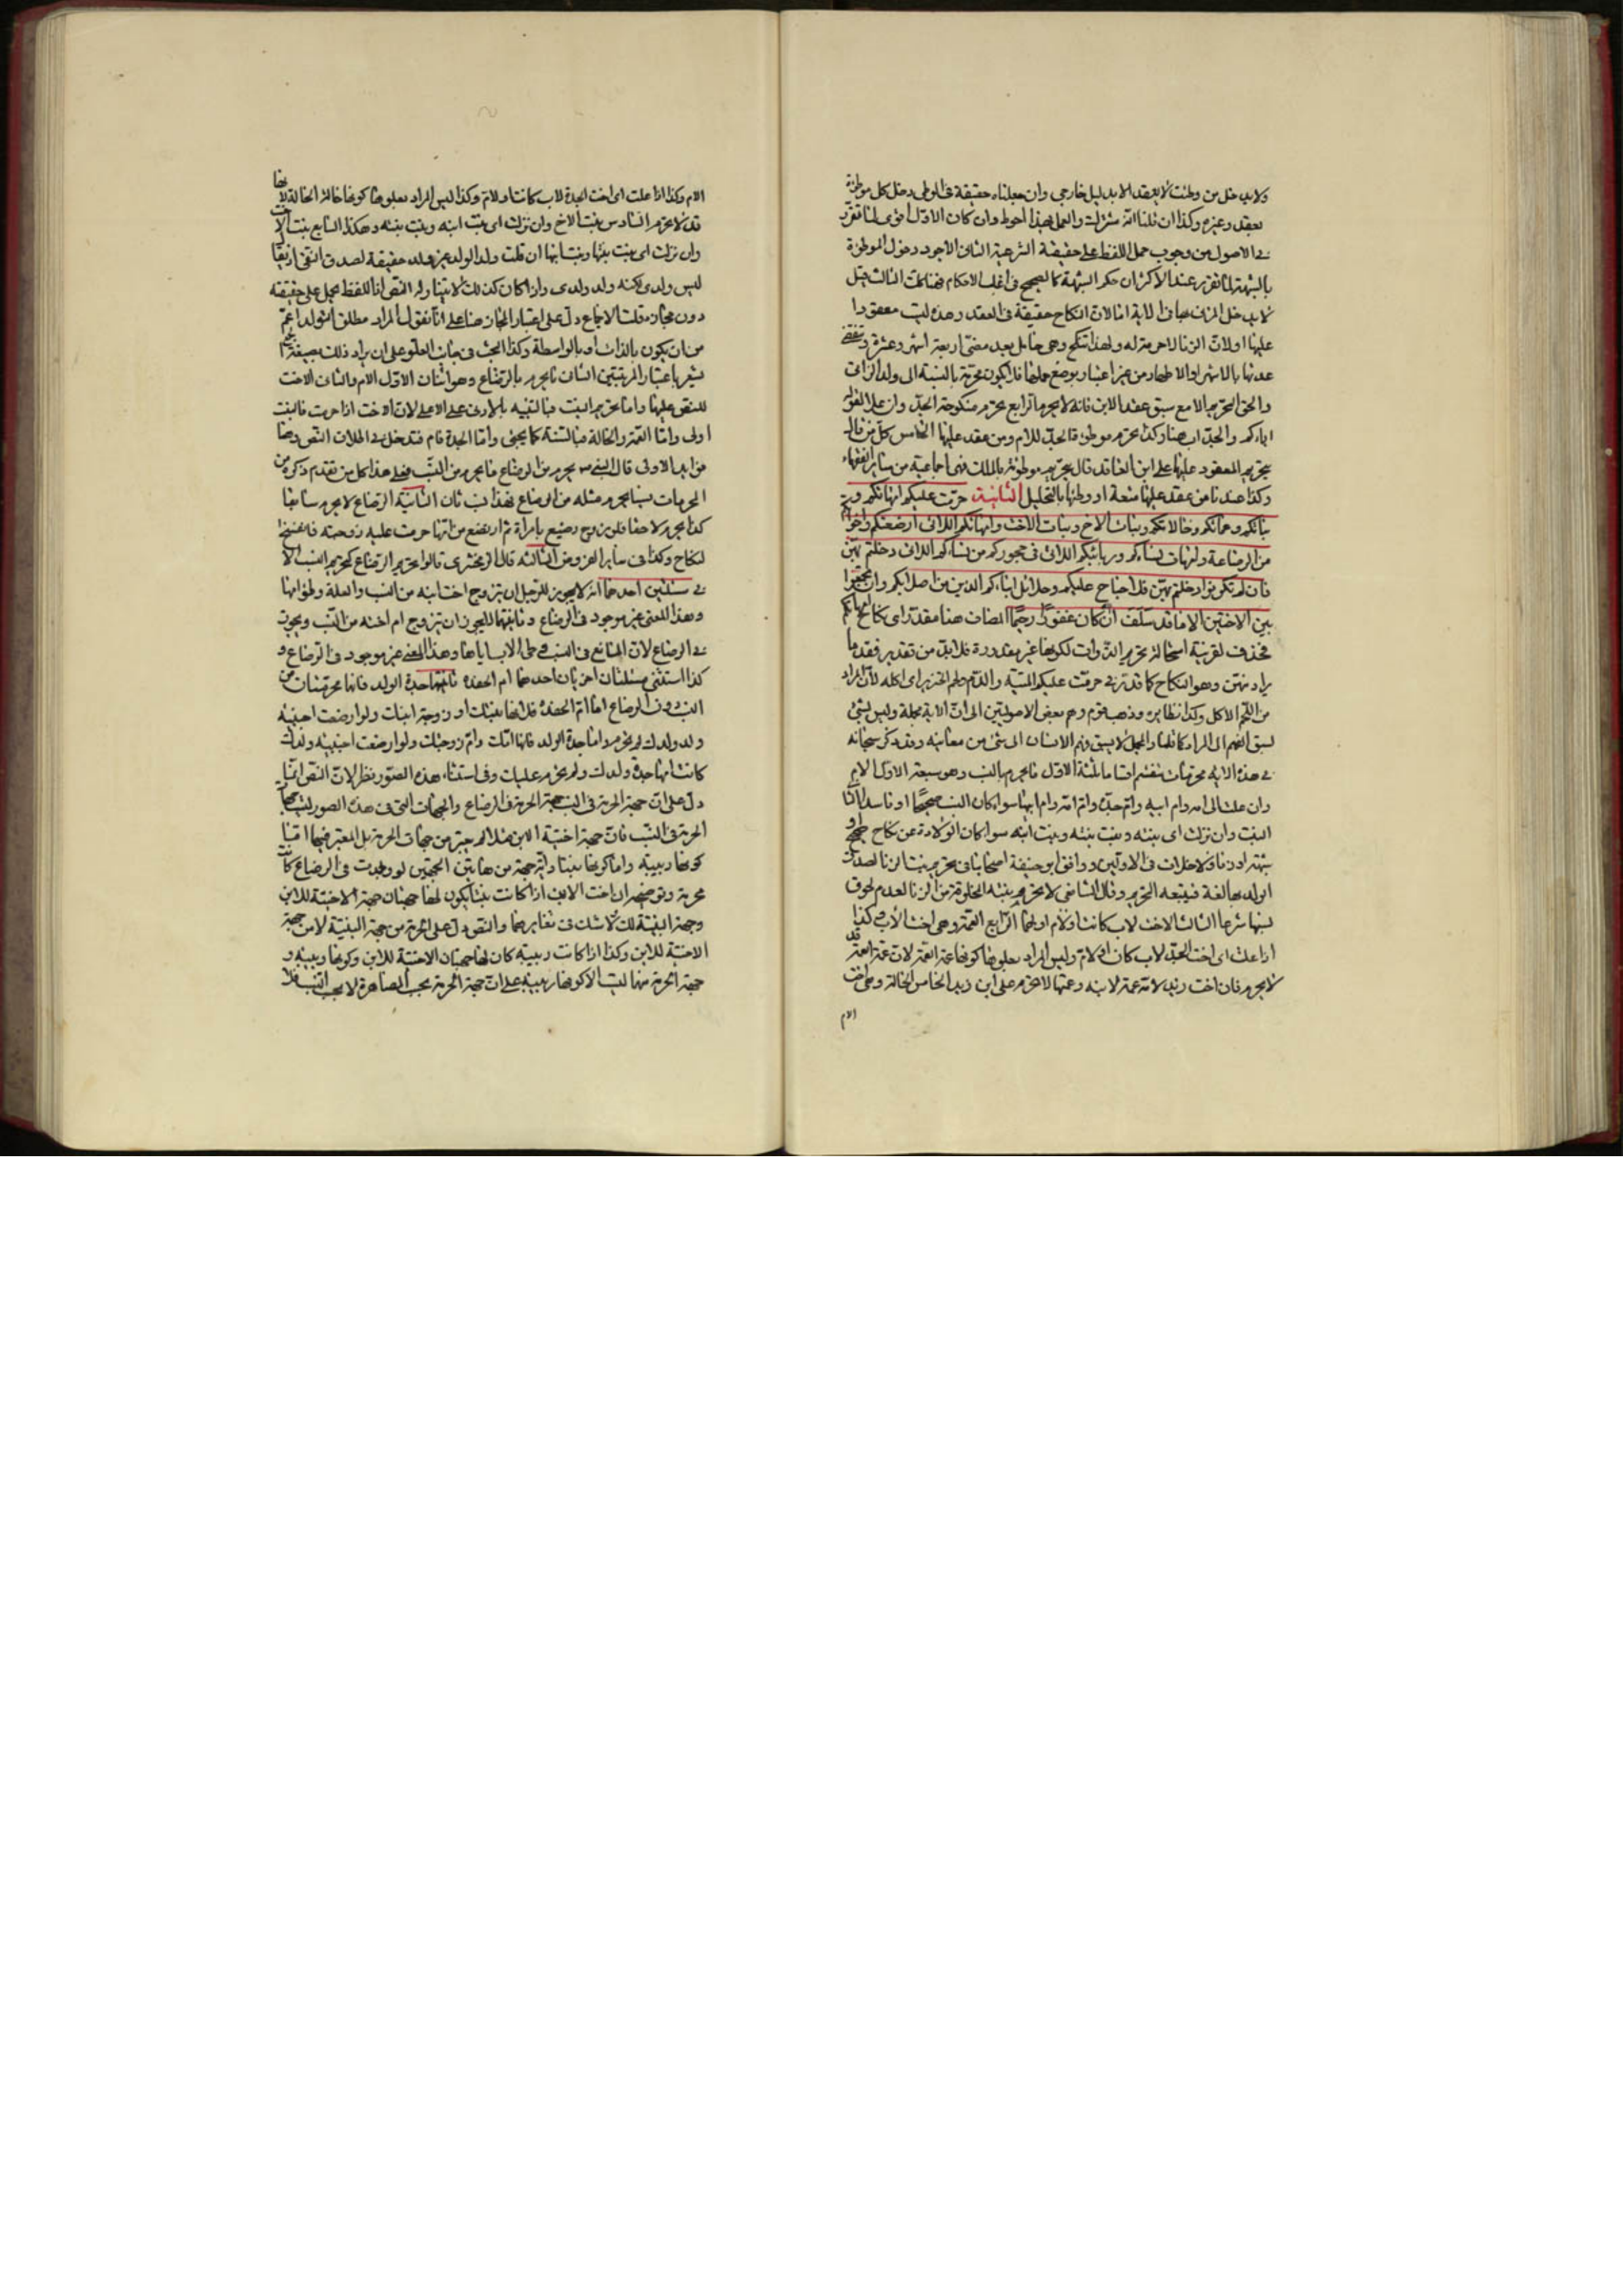 ولا يدخل من وطئت لا بعقد الا بدليل خارجي وان جعلناه حقيقة في الوطى دخل كل موطوءة
بعقد وغيره وكذا ان قلنا انه مشترك والعمل بهذا احوط وان كان الاول اقوى لما تقرر
في الاصول من وجوب حمل اللفظ على حقيقته الشرعية الثاني الاجود دخول الموطوءة
بالشبهة لما تقرر عند الاكثر ان حكم الشبهة كالصحيح في اغلب الاحكام
لا يدخل المزني بها في الآية اما لان النكاح حقيقة في العقد وهذه ليست معقودا
عليها اولان الزنا لا حرمة له ولهذا تنكح وهى حامل بعد مضى اربعة اشهر وعشرة وتنقضي
عدتها بالاشهر او الاطهار من غير اعتبار بوضع حملها فلا يكون محرمة بالنسبة الى ولد الزاني
والحق التحريم الا مع سبق عقد الابن فانه لا يحرمها الرابع يحرم منكوحة الجد وان علا لقوله
اباءكم والجد اب هنا وكذا يحرم موطوءة الجد للام ومن عقد عليها الخامس كل من قال
بتحريم المعقود عليها على ابن العاقد قال بتحريم موطوءته بالملك فهى اجماعية من سائر الفقهاء
وكذا عندنا من عقد عليها متعة او وطئها بالتحليل الثانية حرمت عليكم امهاتكم و
بناتكم وعماتكم وخالاتكم وبنات الاخ وبنات الاخت وامهاتكم اللاتى ارضعنكم واخواتكم
من الرضاعة وامهات نساءكم وربائبكم اللاتى فى حجوركم من نساءكم اللاتى دخلتم بهن
فان لم تكونوا دخلتم بهن فلا جناح عليكم وحلائل ابناءكم الذين من اصلابكم وان تجمعوا
بين الاختين الا ما قد سلف ان الله كان غفورا رحيما المضاف هنا مقدر اى نكاح امهاتكم
فحذف لقرينة استحالة تحريم الذوات لكونها غير مقدورة فلابد من تقدير فقد ما
يراد منهن وهو النكاح كما قدر في حرمت عليكم الميتة والدم ولحم الخنزير اى اكله لان المراد
من اللحم الاكل وكذا نظايره وذهب قوم وهم بعض الاصوليين الى ان الآية مجملة وليس بشئ
لسبق الفهم الى المراد كما قلنا والمجمل لا يسبق فهم الانسان الى شئ من معانيه وقد ذكر سبحانه
في هذه الآية محرمات تنقسم اقساما ثلثة الاول ما يحرم بالنسب وهو سبعة الاول الام
وان علت الى امه وام ابيه وام جده وام امه وام ابيها سواء كان النسب صحيحا او فاسدا
البنت وان نزلت اى بنته وبنت بنته وبنت ابنه سواء كان الولادة عن نكاح صحيح او
شبهة او زنا ولا خلاف فى الاولين ووافق ابو حنيفة اصحابنا فى تحريم بنت الزنا لصدق
الولد بها لغة فيتبعه التحريم وقال الشافعى لا يحرم بنته المخلوقة من الزنا لعدم لحوق
نسبها شرعا الثالث الاخت لاب كانت اولام اولهما الرابع العمة وهى اخت الاب وكذا
اذا علت اى اخت الجد لاب كان او لام وليس المراد بعلوها كونها عمة العمة لان عمة العمة قد
لا يحرم فان اخت زيد لامه عمة لابنه وعمتها لا تحرم على ابن زيد الخامس الخالة وهى اخت
الام
الام وكذا اذا علت اى اخت الجدة لاب كانت او لام وكذا ليس المراد بعلوها كونها خالة الخالة لانها
قد لا تحرم السادس بنت الاخ وان نزلت اى بنت ابنه وبنت بنته وهكذا السابع بنت الاخت
وان نزلت اى بنت بنتها وبنت ابنها ان قلت ولد الولد غير ولد حقيقة لصدق النفى
ليس ولدى لكنه ولد ولدى واذا كان كذلك لا يتناوله النص اذ اللفظ يحمل على حقيقته
دون مجازه قلت الاجماع دل على اعتبار المجاز هنا على انا نقول المراد مطلق التولد اعم
من ان يكون بالذات او بالواسطة وكذا البحث فى جانب العلو على ان يراد ذلك بصيغة الجمع
يشعر باعتبار المرتبتين الثانى ما يحرم بالرضاع وهو اثنان الاول الام والثانى الاخت
للنص عليهما واما تحريم البنت فبالتنبيه بالادنى على الاعلى لان الاخت اذا حرمت فالبنت
اولى واما العمة والخالة فبالسنة كما يجئ واما الجدة فام فتدخل في اطلاق النص وهنا
فوايد الاولى قال النبي ص يحرم من الرضاع ما يحرم من النسب فعلى هذا كل من تقدم ذكره من
المحرمات نسبا يحرم مثله من الرضاع الثانية الرضاع لا يحرم سابقا
كذا يحرم لاحقا فلو تزوج رضيع بامراة ثم ارتضع من امها حرمت عليه زوجته فانفسخ
النكاح وكذا فى ساير الفروض الثالثة قال الزمخشرى قالوا تحريم الرضاع كتحريم النسب الا
في مسئلتين احدهما انه لا يجوز للرجل ان يتزوج اخت ابنه من النسب والعلة وطؤ امها
وهذا المعنى غير موجود فى الرضاع وثانيهما لا يجوز ان يتزوج ام اخته من النسب ويجوز
في الرضاع لان المانع فى النسب وطى الاب اياها وهذا المعنى غير موجود فى الرضاع و
كذا استثنى مسئلتان اخريان احدهما ام الحفدة ثانيتهما جدة الولد فانهما محرمتان من
النسب دون الرضاع اما ام الحفدة فلانها بنتك او زوجة ابنك ولو ارضعت اجنبية
ولد ولدك لم تحرم واما جدة الولد فانها امك وام زوجتك ولو ارضعت اجنبية ولدك
كانت امها جدة ولدك ولم تحرم عليك وفى استثناء هذه الصور نظر لان النص انما
دل على ان جهة الحرمة فى النسب جهة الحرمة فى الرضاع والجهات التى فى هذه الصور ليست جهات
الحرمة فى النسب فان جهة اختية الابن مثلا لم يعتبر من جهات الحرمة بل المعتبر فيها اما
كونها ربيبة واما كونها بنتا واية جهة من هاتين الجهتين لو وجدت فى الرضاع كانت
محرمة وتوضيحه ان اخت الابن اذا كانت بنتا يكون لها جهتان جهة الاختية للابن
وجهة البنتية لك لا شك فى تغايرهما والنص دل على الحرمة من جهة البنتية لا من جهة
الاختية للابن وكذا اذا كانت ربيبة كان لها جهتان الاختية للابن وكونها ربيبة و
جهة الحرمة منهما ليست الا كونها ربيبة على ان جهة الحرمة بحسب المصاهرة لا بحسب النسب فلا